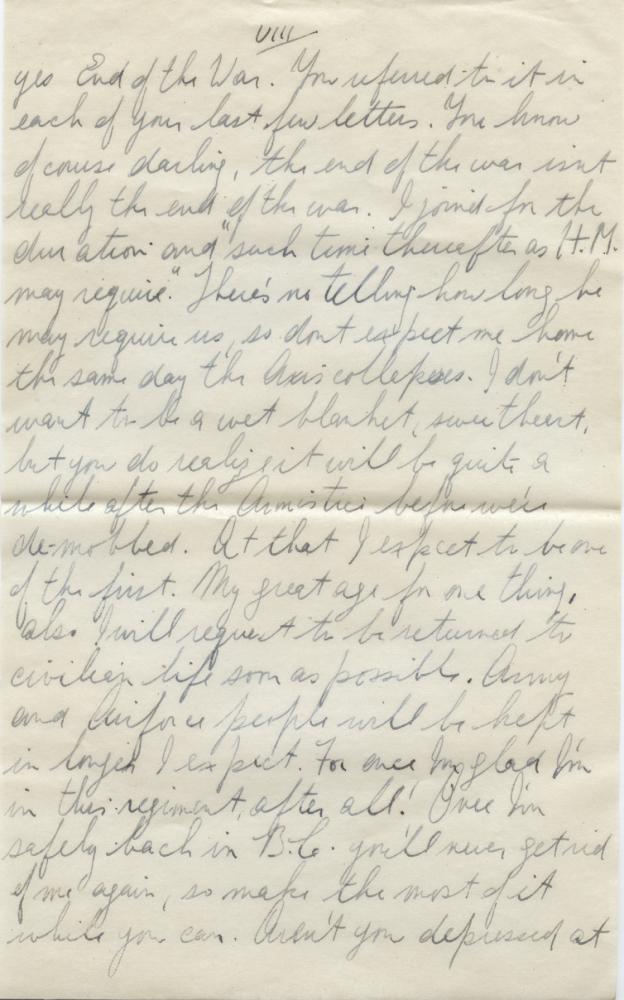 VIII
yes End of the War. You referred to it in
each of your last few letters. You know
of course darling, the end of the war isn't
really the end of the war. I joined for the
duration and "such time thereafter as H.M.
may require." There's no telling how long he
may require us, so dont expect me home
the same day the Axis collepses. I don't
want to be a wet blanket, sweetheart,
but you do realize it will be quite a
while after the Armistice before we're
de-mobbed. At that I expect to be one
of the first. My great age for one thing,
also I will request to be returned to
civilian life soon as possible. Army
and Airforce people will be kept
in longer I expect. For once, I'm glad I'm
in this regiment, after all! Once I'm
safely back in B.C. you'll never get rid
of me again, so make the most of it
while you can. Aren't you depressed at